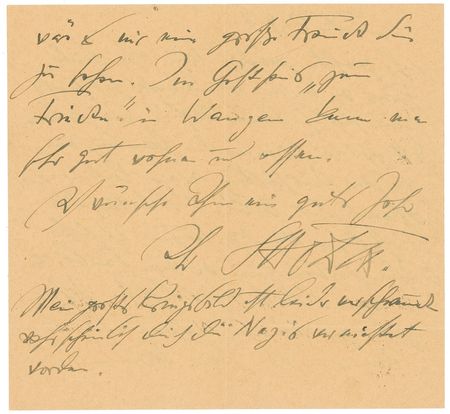 wär es mir eine große Freude Sie
zu sehen. Im Gasthaus „zum
Frieden“ in Wangen kann man
sehr gut wohnen und essen.
Ich wünsche Ihnen ein gutes Jahr
Ihr Otto Dix.
Mein großes Kriegsbild ist leider verschwunden
wahrscheinlich durch die Nazis vernichtet
worden.